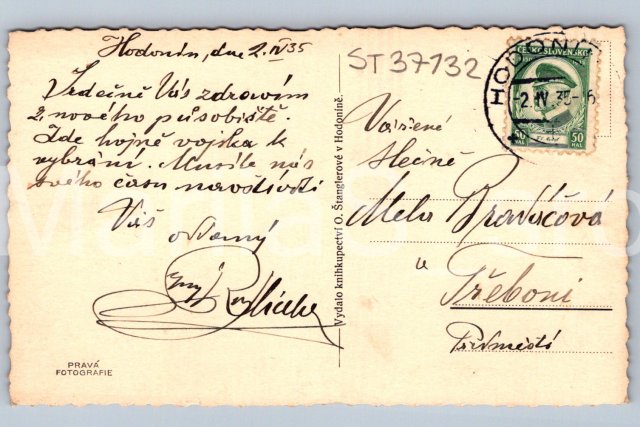 Hodonín, dne 2.IV 35
Srdečně Vás zdravím
z nového působiště.
Zde hojně vojska k
vybrání. Musíte nás
svého času navštíviti
Váš
oddaný
PRAVÁ
FOTOGRAFIE
Vydalo knihkupectví O. Štanglerové v Hodoníně.
ST 37132
ČESKOSLOVENSKO
50
50
HAL
HODONÍN
-2.IV.35-
Vážené
slečně
u
Třeboni
Předměstí